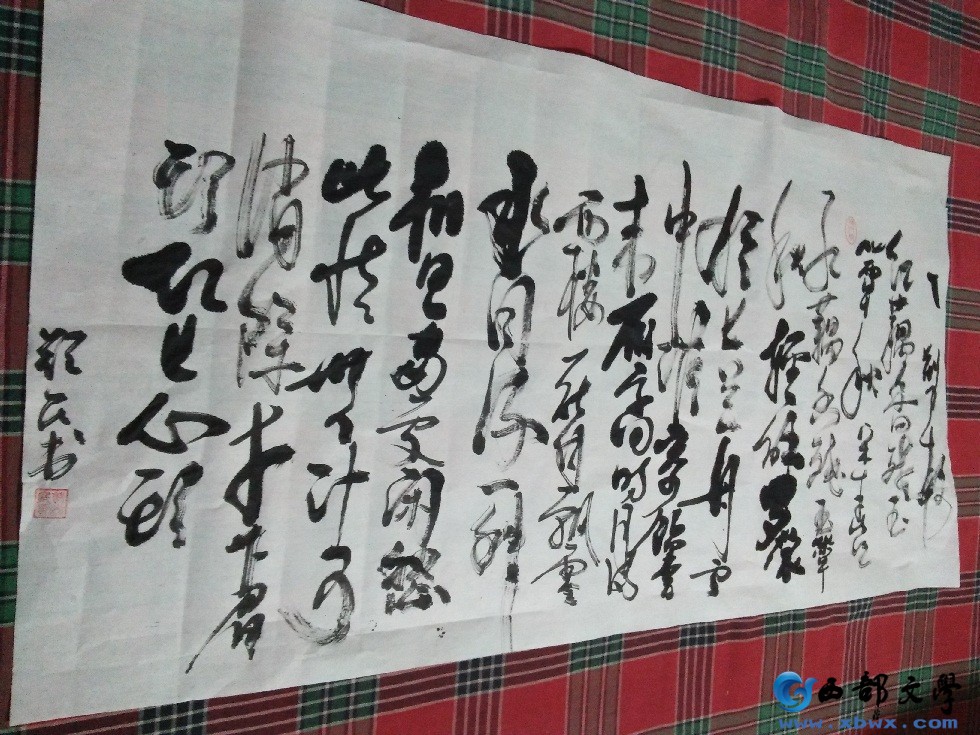 一剪梅
红藕香残玉
簟秋
红藕香残玉簟
秋 轻解罗
上兰舟 云
中谁寄锦书
来雁字回时月满
西楼 花自飘零
水自流 一种
相思两处闲愁
此情无计可
消除才下眉
却上心头
云书
西部文学
www.xbwx.com